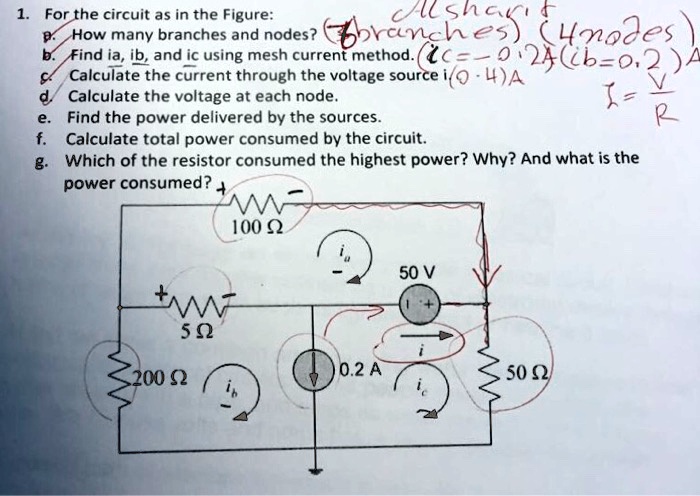 Alsharif
1. For the circuit as in the Figure:
a. How many branches and nodes? (6branches) (4nodes)
b. Find ia, ib, and ic using mesh current method. (ic=-0.2A(ib=0.2)A
c. Calculate the current through the voltage source i(0.4)A
d. Calculate the voltage at each node. I=V/R
e. Find the power delivered by the sources.
f. Calculate total power consumed by the circuit.
g. Which of the resistor consumed the highest power? Why? And what is the
power consumed?
+ -
100 Ω
ia
-
50 V
+ -
- +
5 Ω
i
200 Ω
ib
-
0.2 A
ic
-
50 Ω